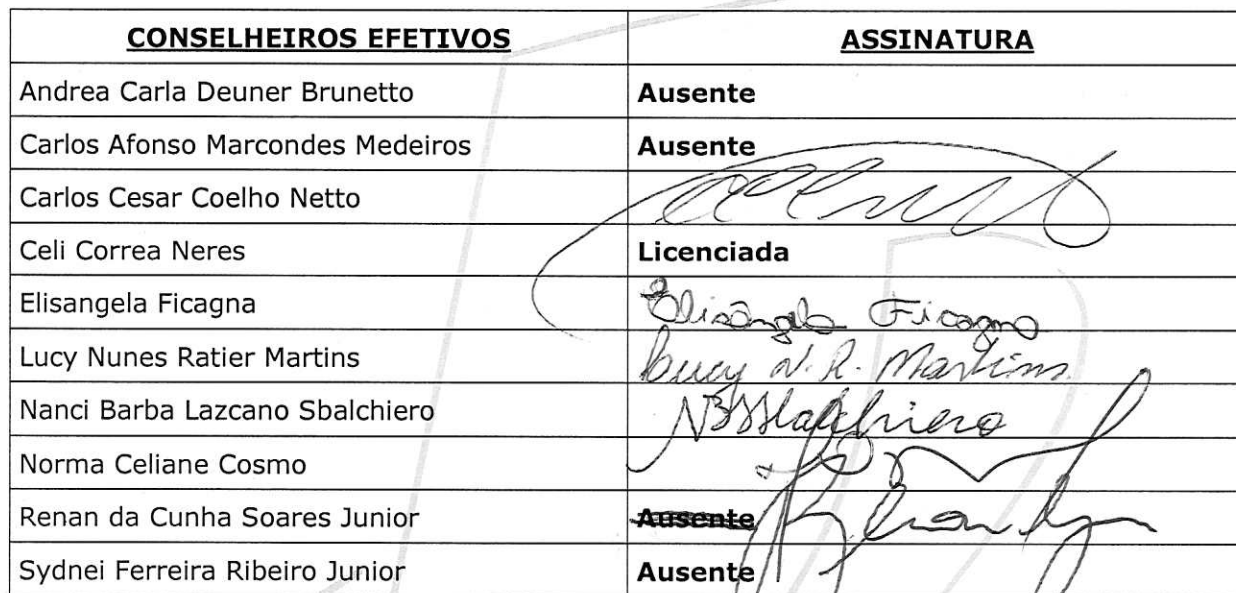 CONSELHEIROS EFETIVOS ASSINATURA
Andrea Carla Deuner Brunetto Ausente
Carlos Afonso Marcondes Medeiros Ausente
Carlos Cesar Coelho Netto
Celi Correa Neres Licenciada
Elisangela Ficagna Elisângela Ficagna
Lucy Nunes Ratier Martins Lucy N. R. Martins
Nanci Barba Lazcano Sbalchiero NBLSbalchiero
Norma Celiane Cosmo
Renan da Cunha Soares Junior Ausente
Sydnei Ferreira Ribeiro Junior Ausente